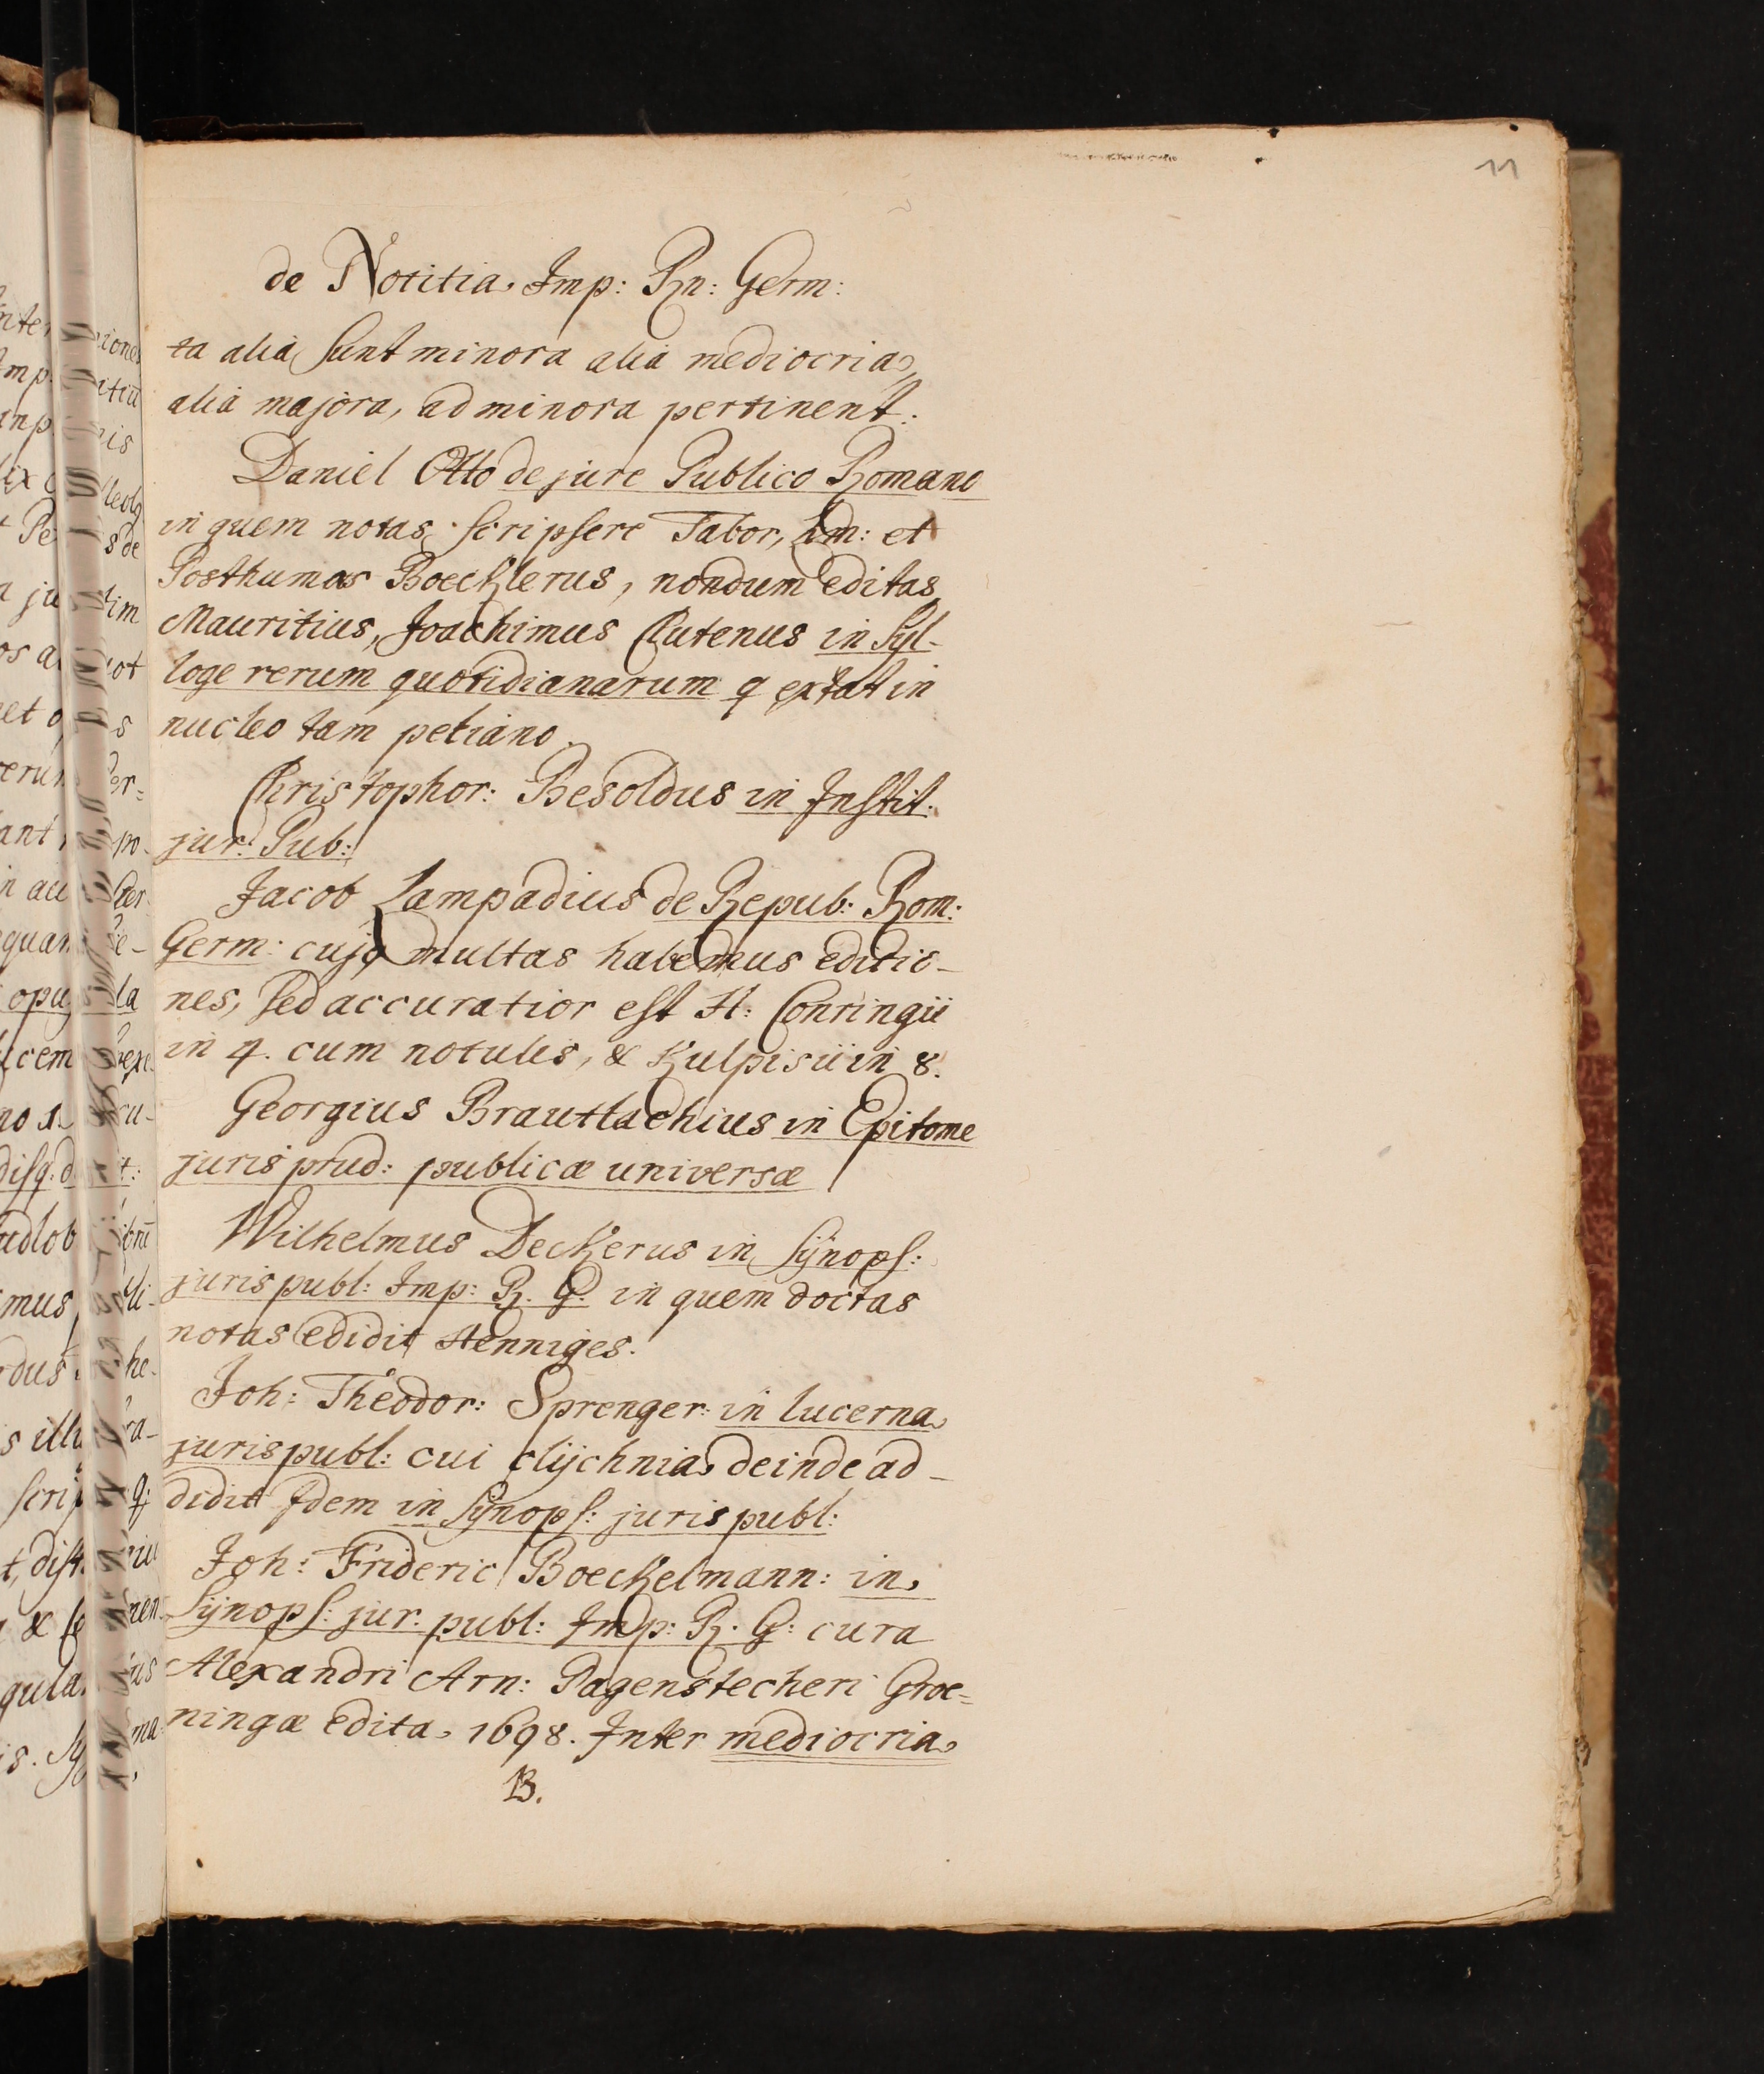 11
de Notitia Imp: Rn: Germ:
ta alia sunt minora alia mediocria,
alia majora, ad minora pertinent.
Daniel Otto de jure Publico Romano
in quem notas scripsere Tabor, Lim: et
Posthumas Boecklerus, nondum editas
Mauritius, Joachimus Clutenus in Syl-
loge rerum quotidianarum q extat in
nucleo tam petiano.
Christophor: Besoldus in Instit.
jur: Pub:
Jacob Lampadius de Repub: Rom:
Germ: cujq multas habemus editio-
nes, sed accuratior est H: Conringii
in 4. cum notulis, & Kulpisii in 8.
Georgius Brautlachius in Epitome
juris prud: publicæ universæ
Wilhelmus Deckerus in Synops:
juris publ: Imp: R. G. in quem doctas
notas edidit Henniges.
Joh: Theodor: Sprenger: in lucerna
juris publ: cui elijchnia deinde ad-
didit Idem in Synops: juris publ:
Joh: Frideric Boeckelmann: in
Synops: jur: publ: Imp: R. G: cura
Alexandri Arn: Pagenstecheri Groe=
ningæ edita 1698. Inter mediocria
B.